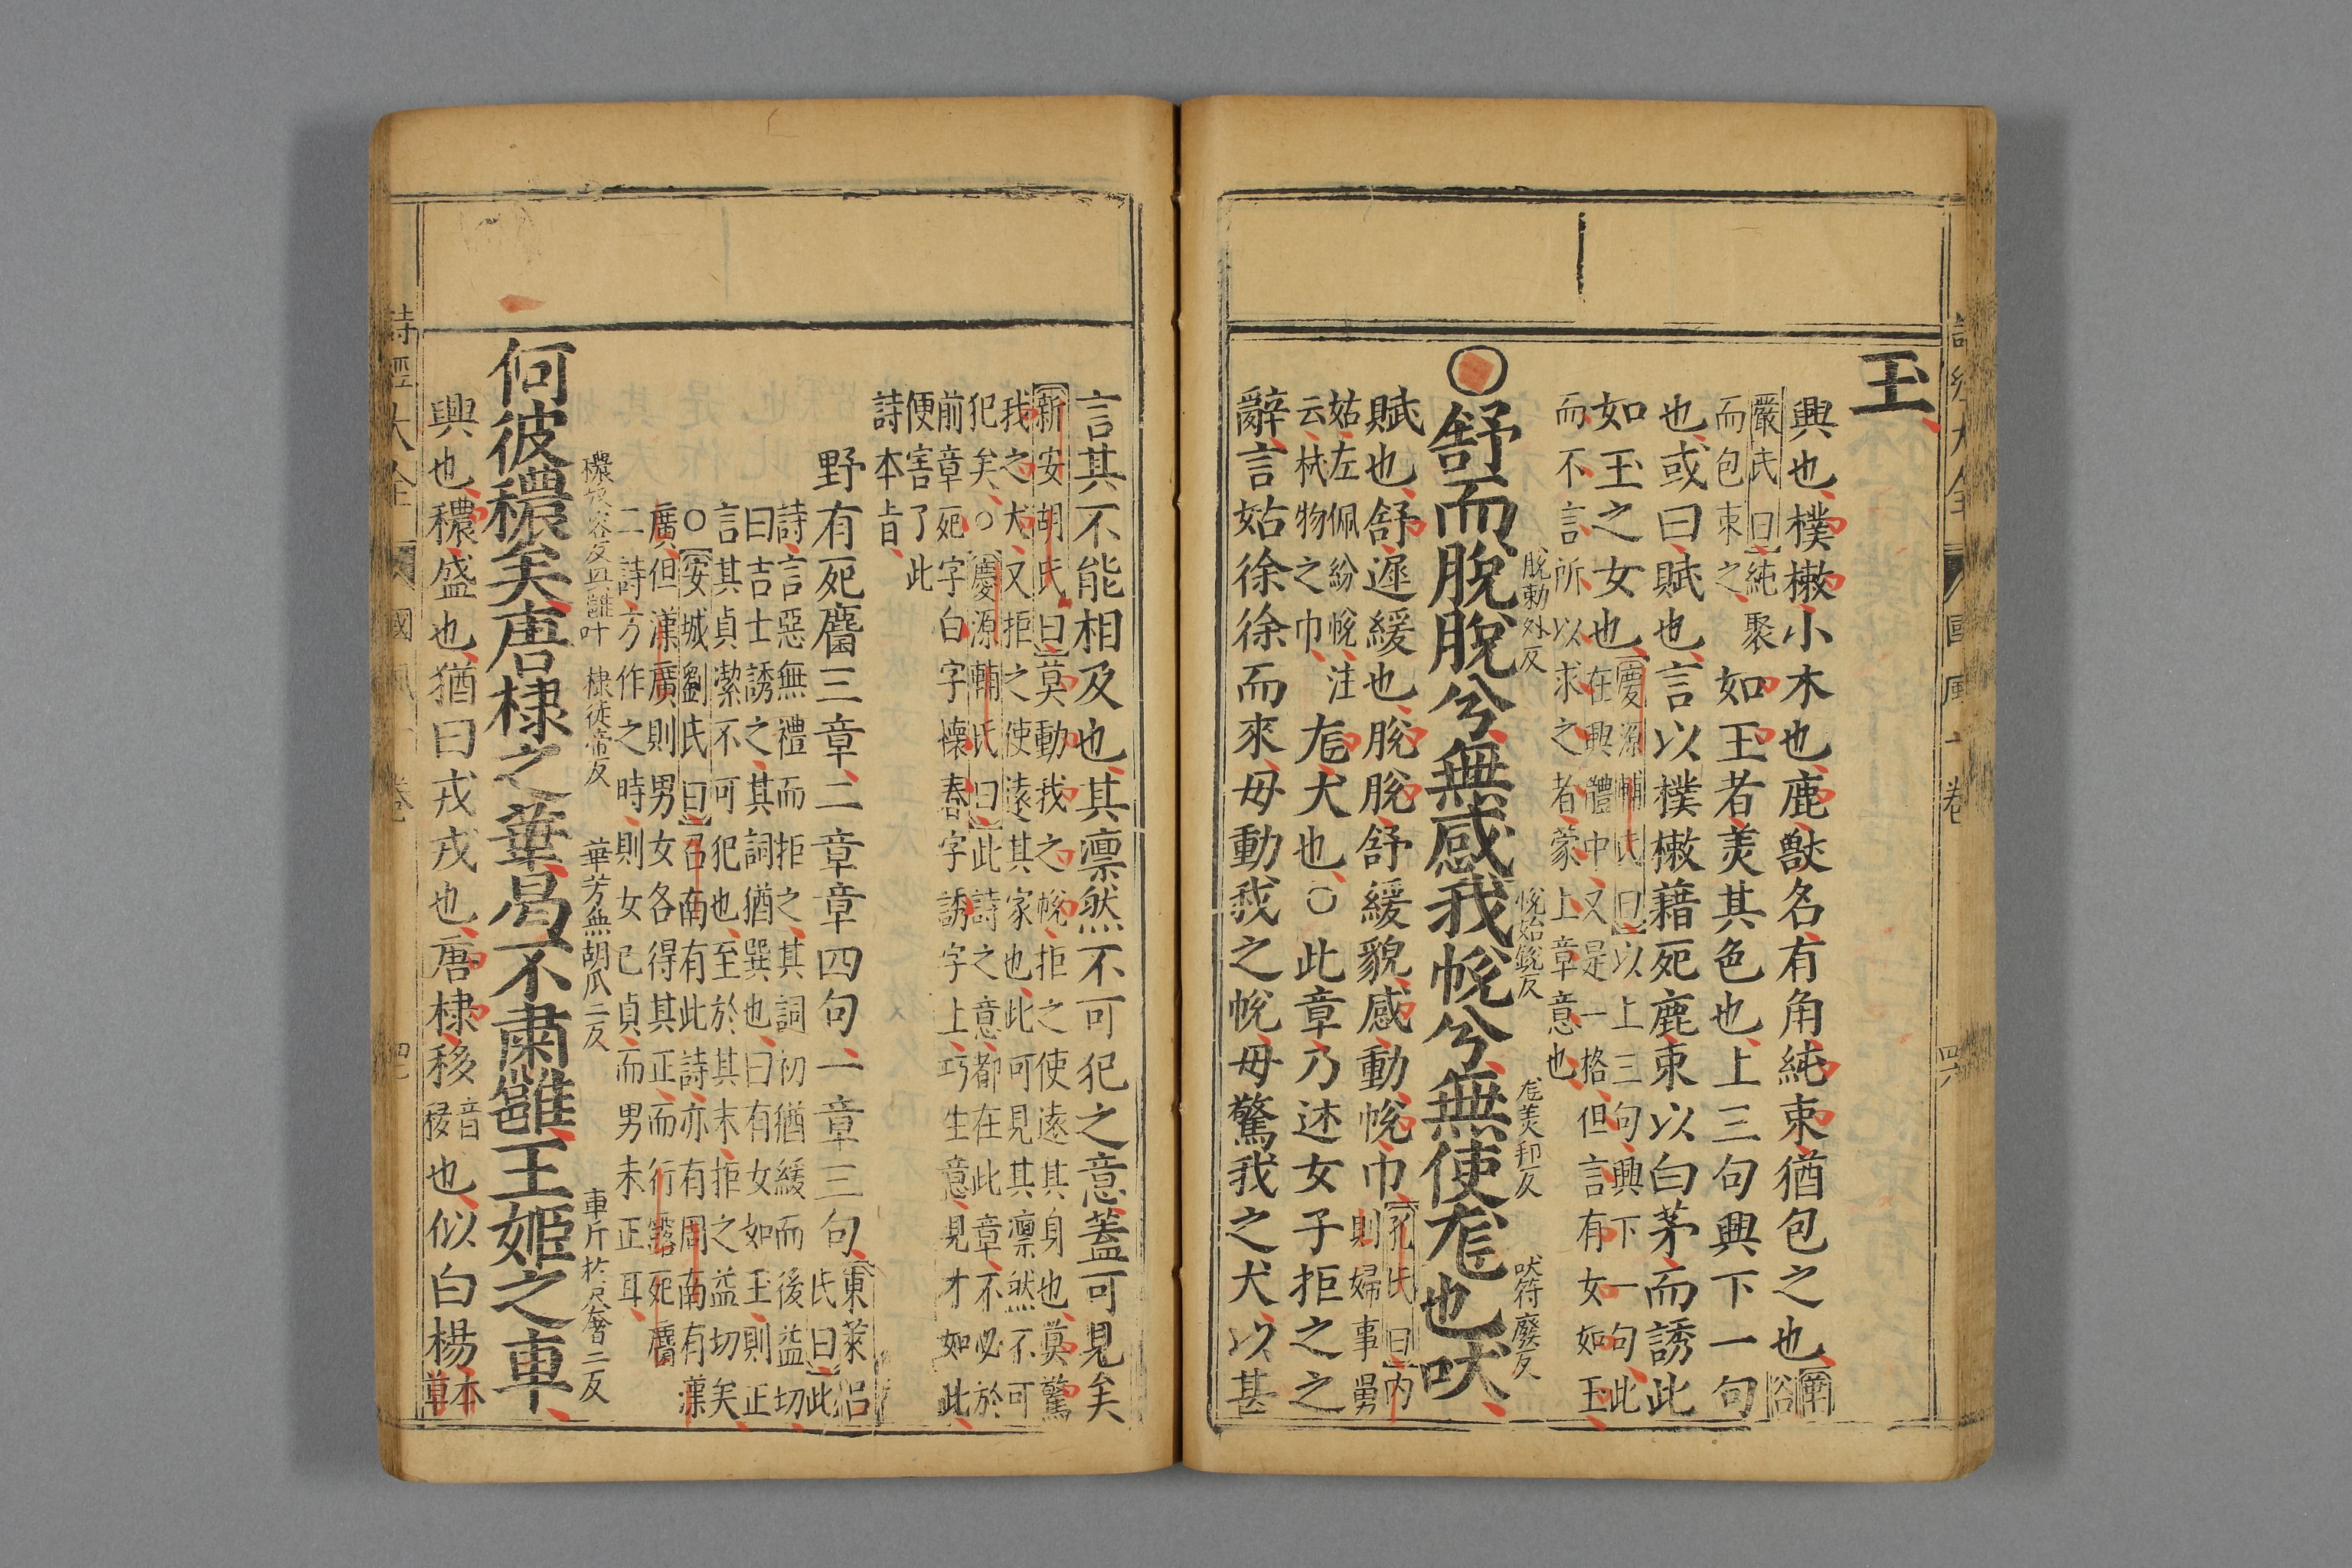 玉
興也樸樕小木也鹿獸名有角純束猶包之也華谷
嚴氏曰純聚而包束之如玉者美其色也上三句興下一句
也或曰賦也言以樸樕藉死鹿束以白茅而誘此
如玉之女也慶源輔氏曰以上三句興下一句此在興體中又是一格但言有女如玉
而不言所以求之者蒙上章意也
○舒而脫脫兮無感我帨兮無使尨也吠
脫勅外反 帨始銳反 尨美邦反 吠符廢反
賦也舒遲緩也脫脫舒緩貌感動帨巾孔氏曰內則婦事舅
姑左佩紛帨注云拭物之巾尨犬也○此章乃述女子拒之之
辭言姑徐徐而來毋動我之帨毋驚我之犬以甚
言其不能相及也其凛然不可犯之意蓋可見矣
新安胡氏曰莫動我之帨拒之使遠其身也莫驚
我之犬又拒之使遠其家也此可見其凛然不可
犯矣○慶源輔氏曰此詩之意都在此章不必於
前章死字白字懷春字誘字上巧生意見才如此
便害了此
詩本旨
野有死麕三章二章章四句一章三句東萊呂氏曰此
詩言惡無禮而拒之其詞初猶緩而後益切
曰吉士誘之其詞猶巽也曰有女如玉則正
言其貞潔不可犯也至於其末拒之益切矣
○安城劉氏曰召南有此詩亦有周南有漢
廣但漢廣則男女各得其正而行露死麕
二詩方作之時則女已貞而男未正耳
何彼穠矣唐棣之華曷不肅雝王姬之車
穠奴容反與雝叶 棣徒帝反 華芳無胡瓜二反 車斤於尺奢二反
興也穠盛也猶曰戎戎也唐棣栘音移也似白楊本草
詩經大全 國風 卷 四六
詩經大全 國風 卷 四七